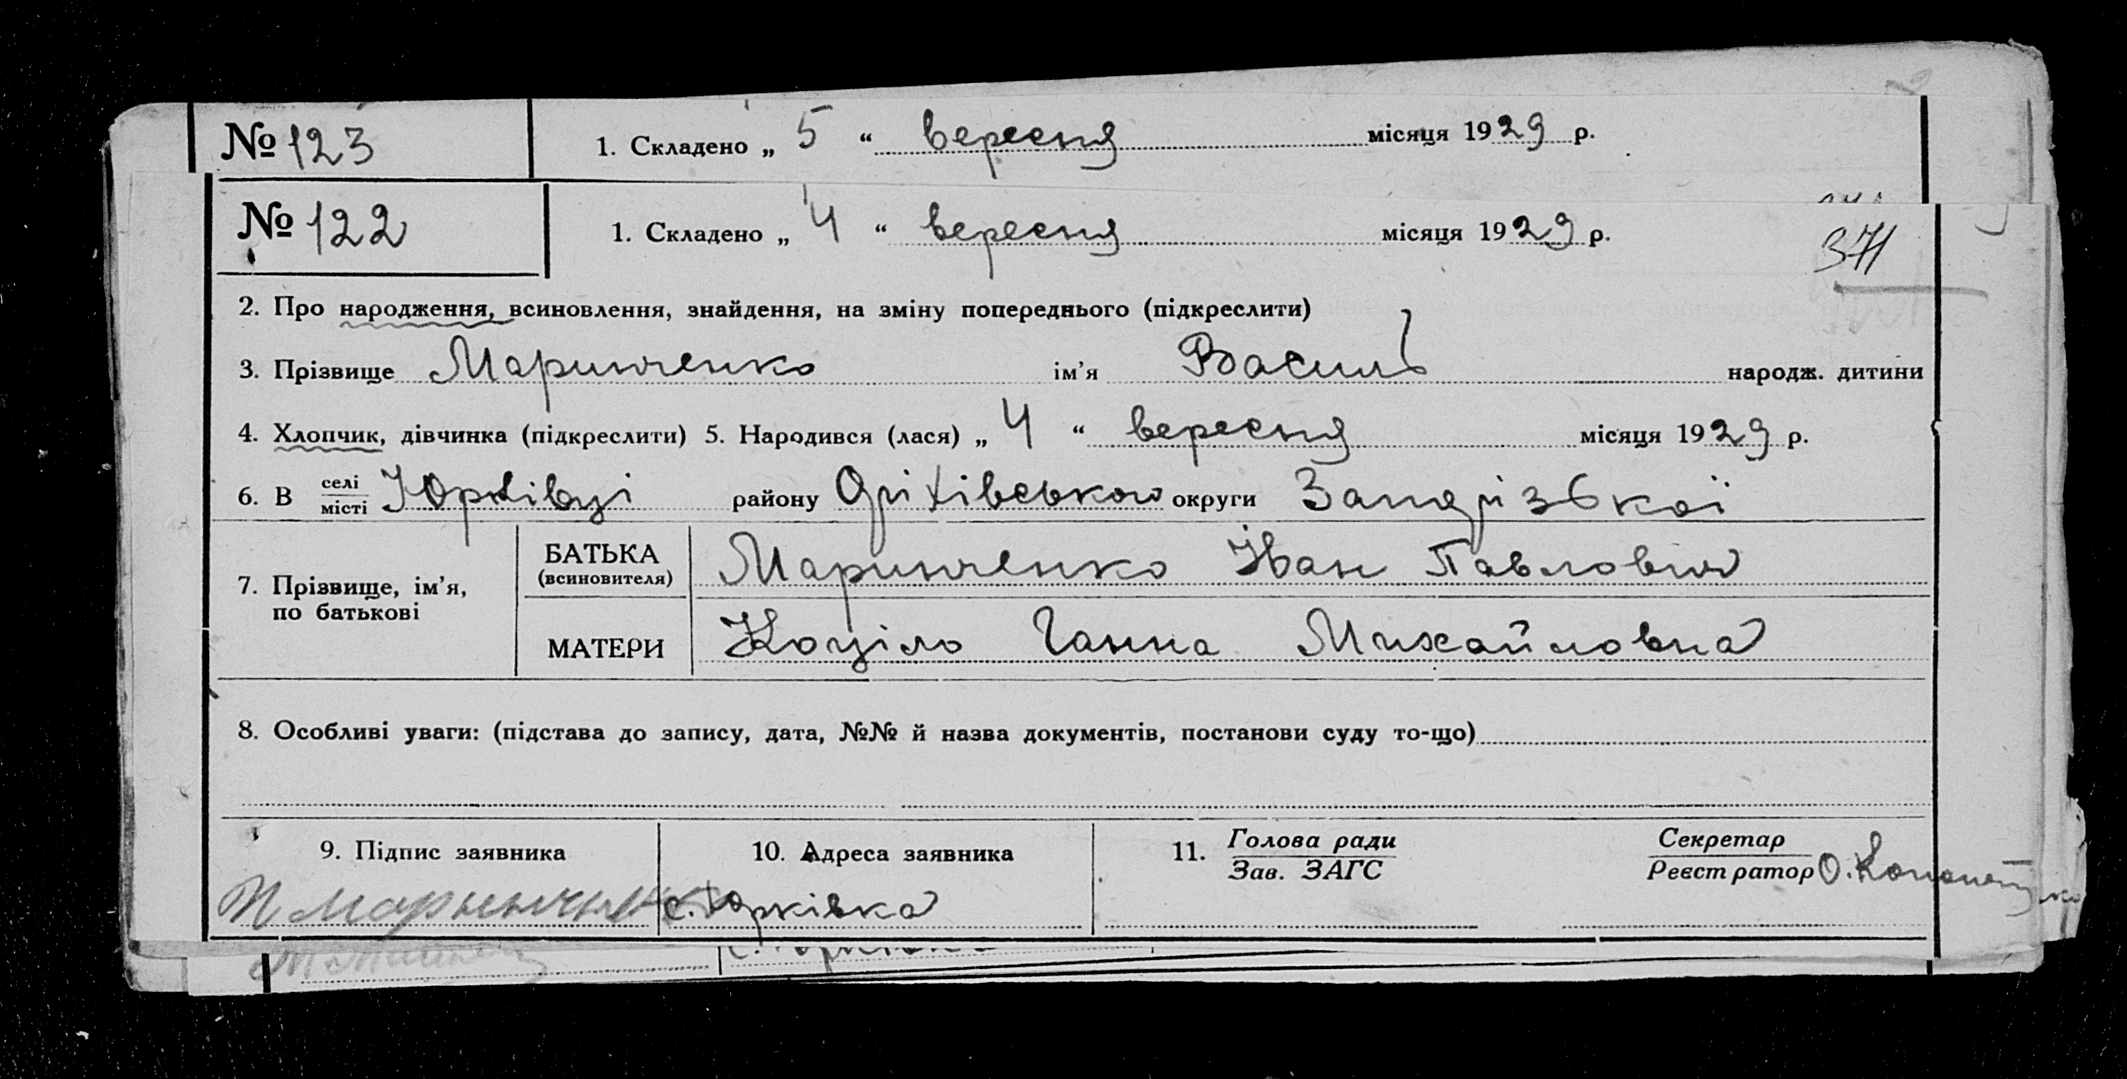 № 123 1. Складено „ 5 “ вересня місяця 1929 р.
№ 122 1. Складено „ 4 “ вересня місяця 1929 р.
371
2. Про народження, всиновлення, знайдення, на зміну попереднього (підкреслити)
3. Прізвище Маринченко ім'я Василь народж. дитини
4. Хлопчик, дівчинка (підкреслити) 5. Народився (лася) „ 4 “ вересня місяця 1929 р.
6. В селі місті Юрківці району Оріхівського округи Запорізької
7. Прізвище, ім'я, по батькові
БАТЬКА (всиновителя) Маринченко Іван Павлович
МАТЕРИ Коціло Ганна Михайловна
8. Особливі уваги: (підстава до запису, дата, №№ й назва документів, постанови суду то-що)
9. Підпис заявника 10. Адреса заявника 11. Голова ради Секретар
Зав. ЗАГС Реєстратор О.
с. Юрківка